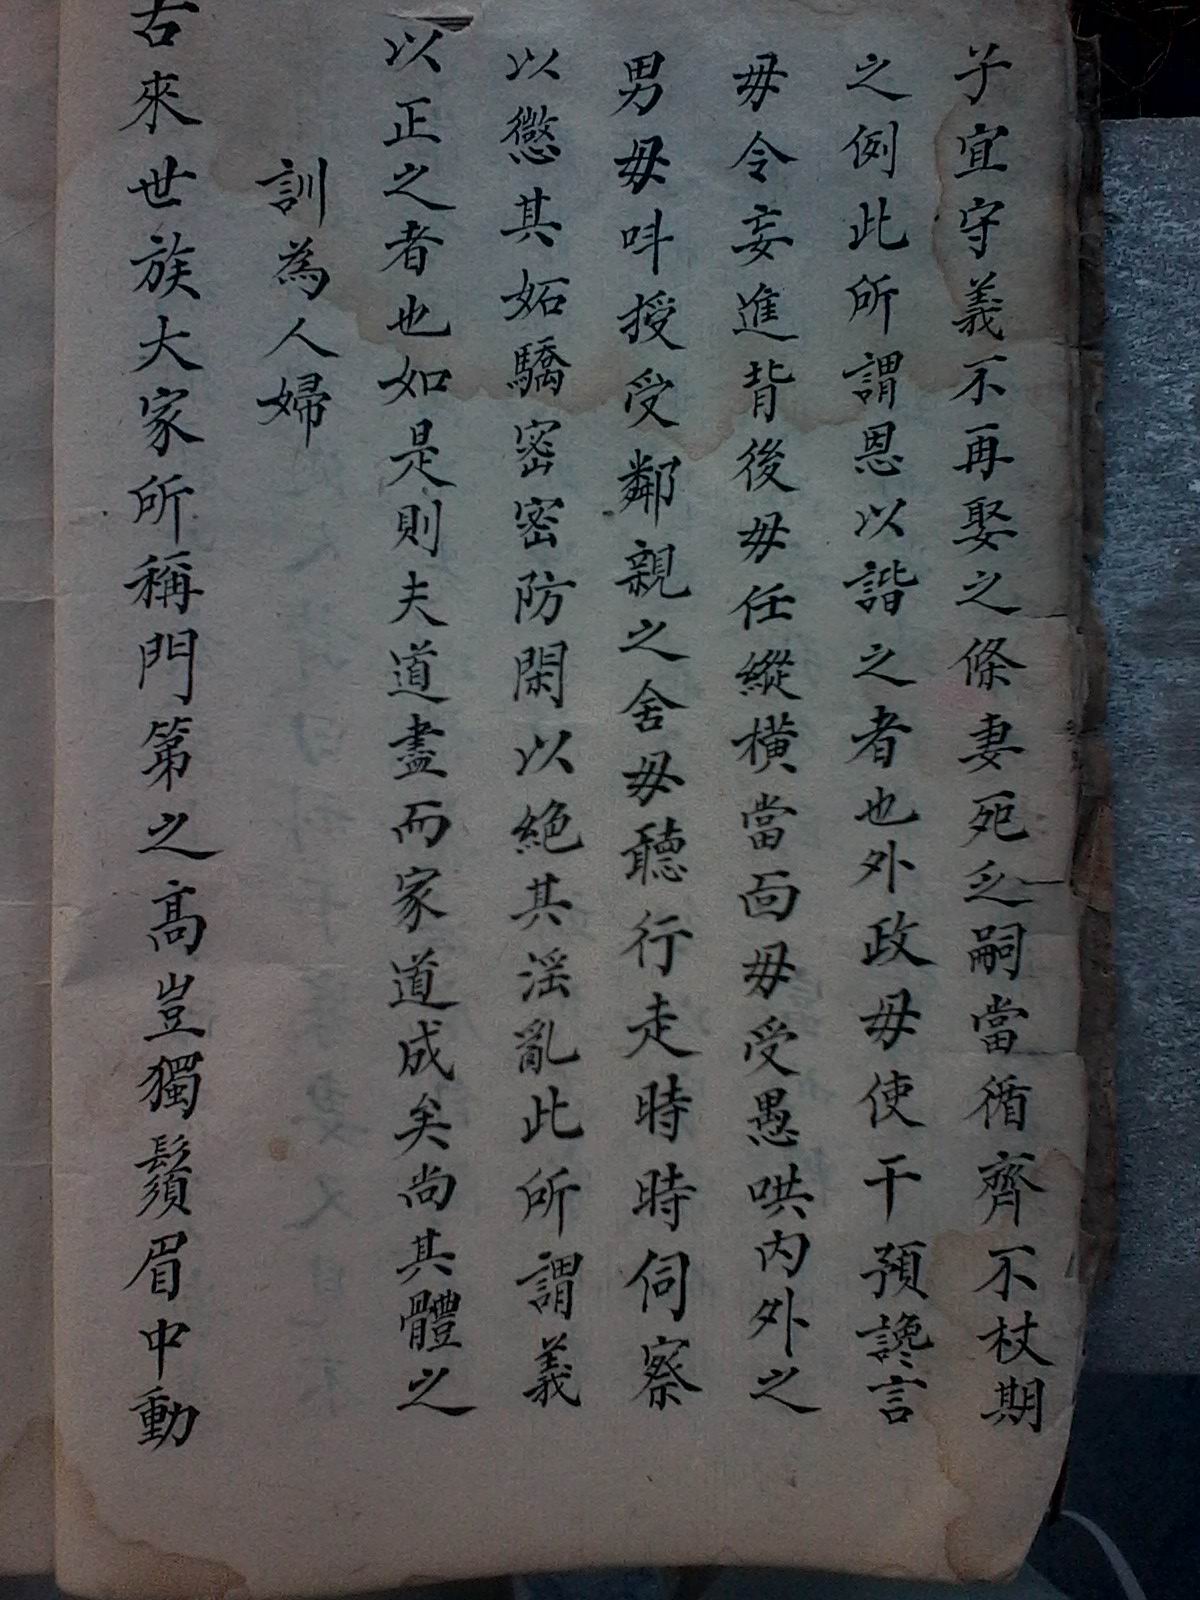 子宜守義不再娶之條妻死乏嗣當循齊不杖期
之例此所謂恩以諧之者也外政毋使干預讒言
毋令妄進背後毋任縱橫當面毋受愚哄内外之
男毋呌授受鄰親之舍毋聽行走時時伺察
以懲其妬驕密密防閑以絕其淫亂此所謂義
以正之者也如是則夫道盡而家道成矣尚其體之
訓為人婦
古來世族大家所稱門第之高豈獨鬚眉中動